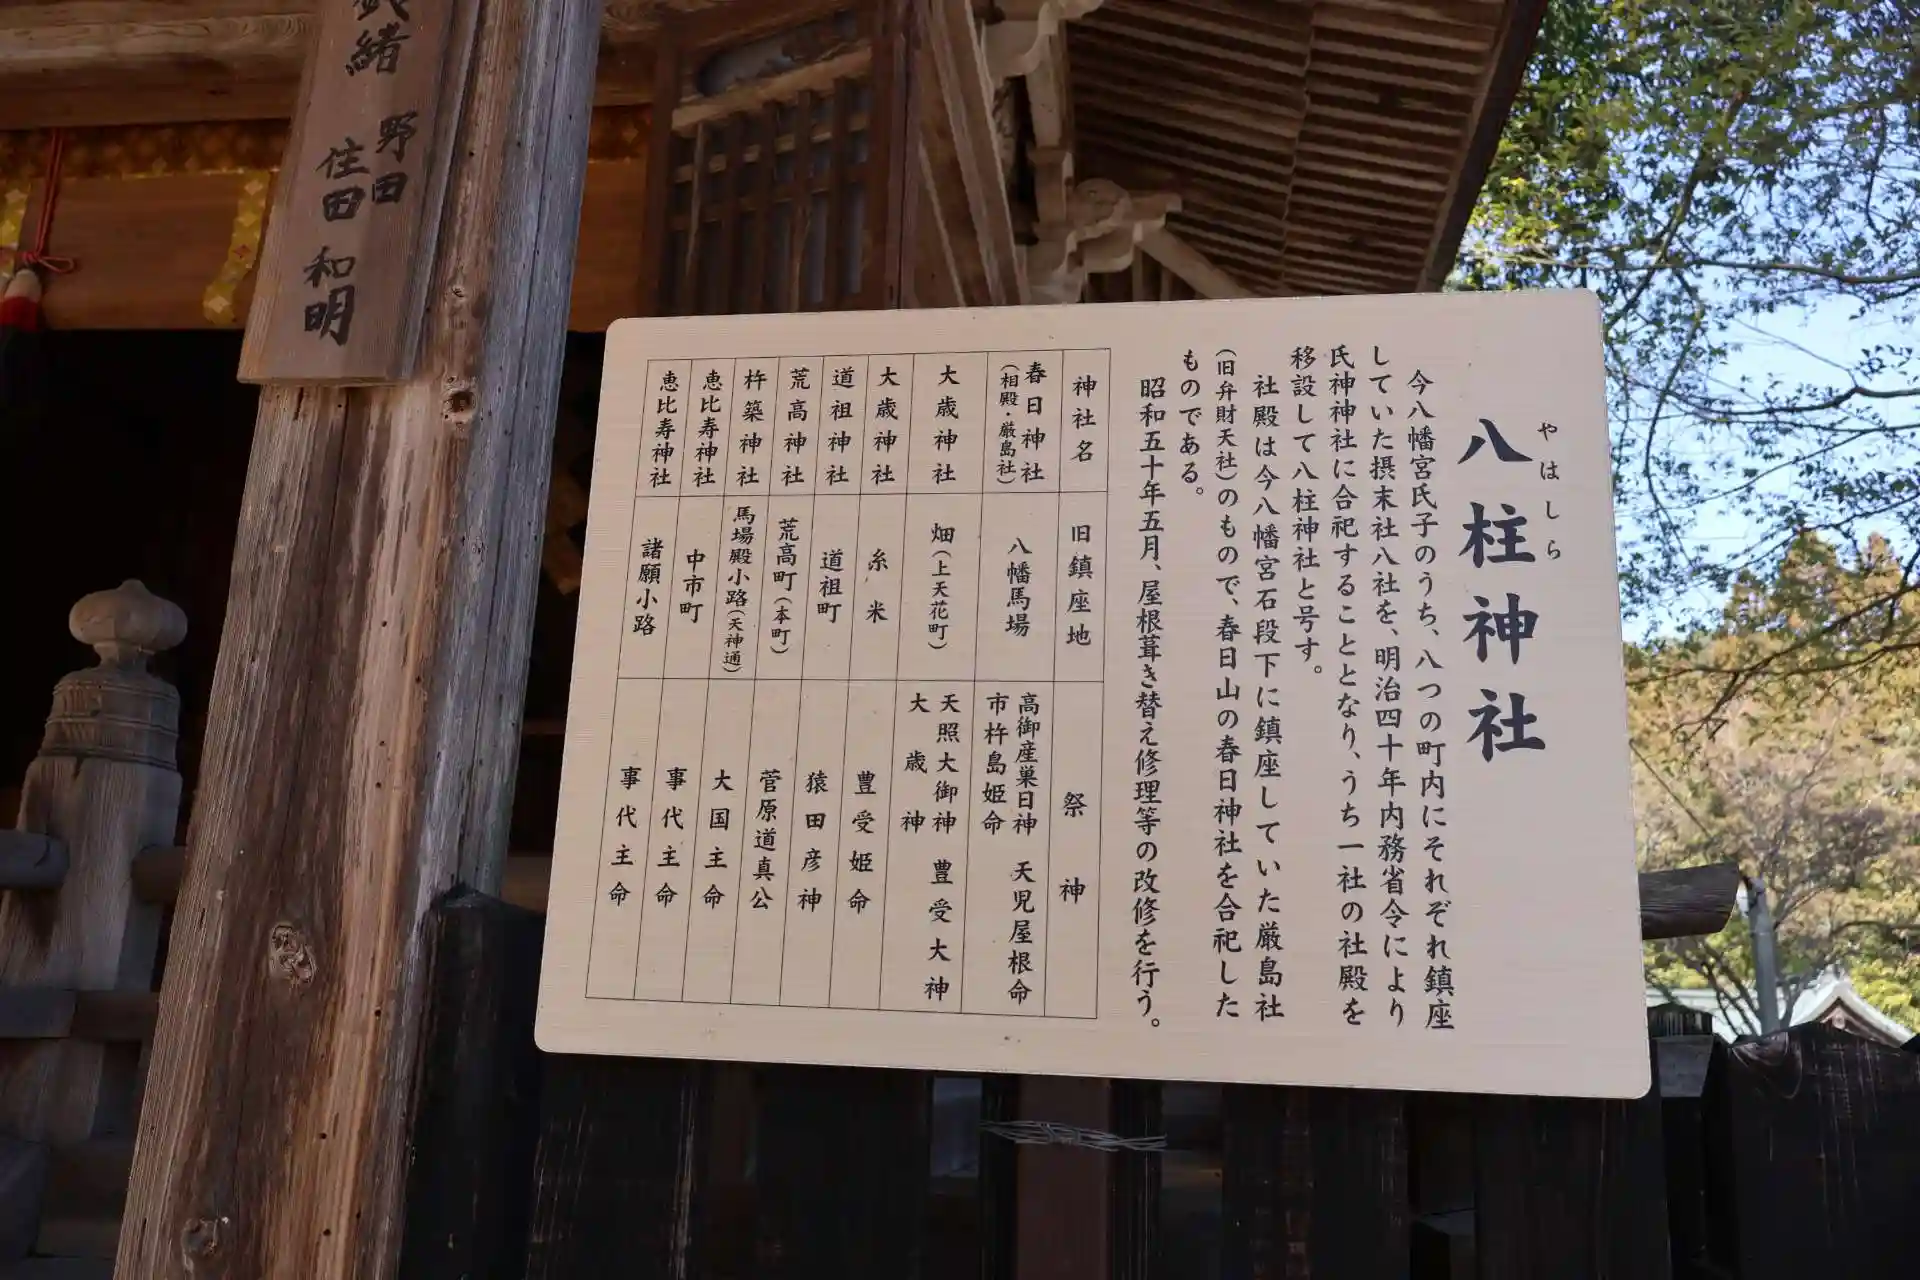 八柱神社
やはしら
今八幡宮氏子のうち、八つの町内にそれぞれ鎮座
していた摂末社八社を、明治四十年内務省令により
氏神神社に合祀することとなり、うち一社の社殿を
移設して八柱神社と号す。
社殿は今八幡宮石段下に鎮座していた厳島社
(旧弁財天社)のもので、春日山の春日神社を合祀した
ものである。
昭和五十年五月、屋根葺き替え修理等の改修を行う。
神社名 旧鎮座地 祭神
春日神社(相殿・厳島社) 八幡馬場 高御産巣日神 天児屋根命 市杵島姫命
大歳神社 畑(上天花町) 天照大御神 豊受大神 大歳神
大歳神社 糸米 豊受姫命
道祖神社 道祖町 猿田彦神
荒高神社 荒高町(本町) 菅原道真公
杵築神社 馬場殿小路(天神通) 大国主命
恵比寿神社 中市町 事代主命
恵比寿神社 諸願小路 事代主命
緒 野田
住田 和明